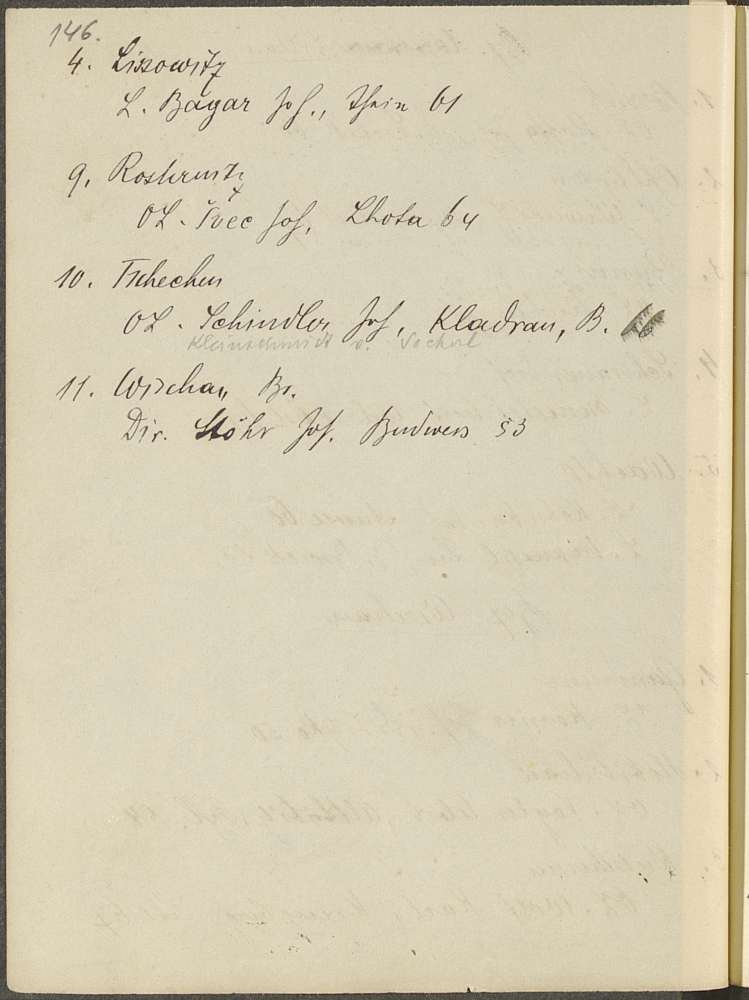 146.
4. Lissowitz
L. Bayar Jos., Thein 61
9. Roshrnitz
OL. Švec Jos, Lhota 64
10. Tschechen
OL. Schindler Jos, Kladrau, B.
Kleinschmidt
11. Wischau Br.
Dir. Stöhr Jos. Budweis 53